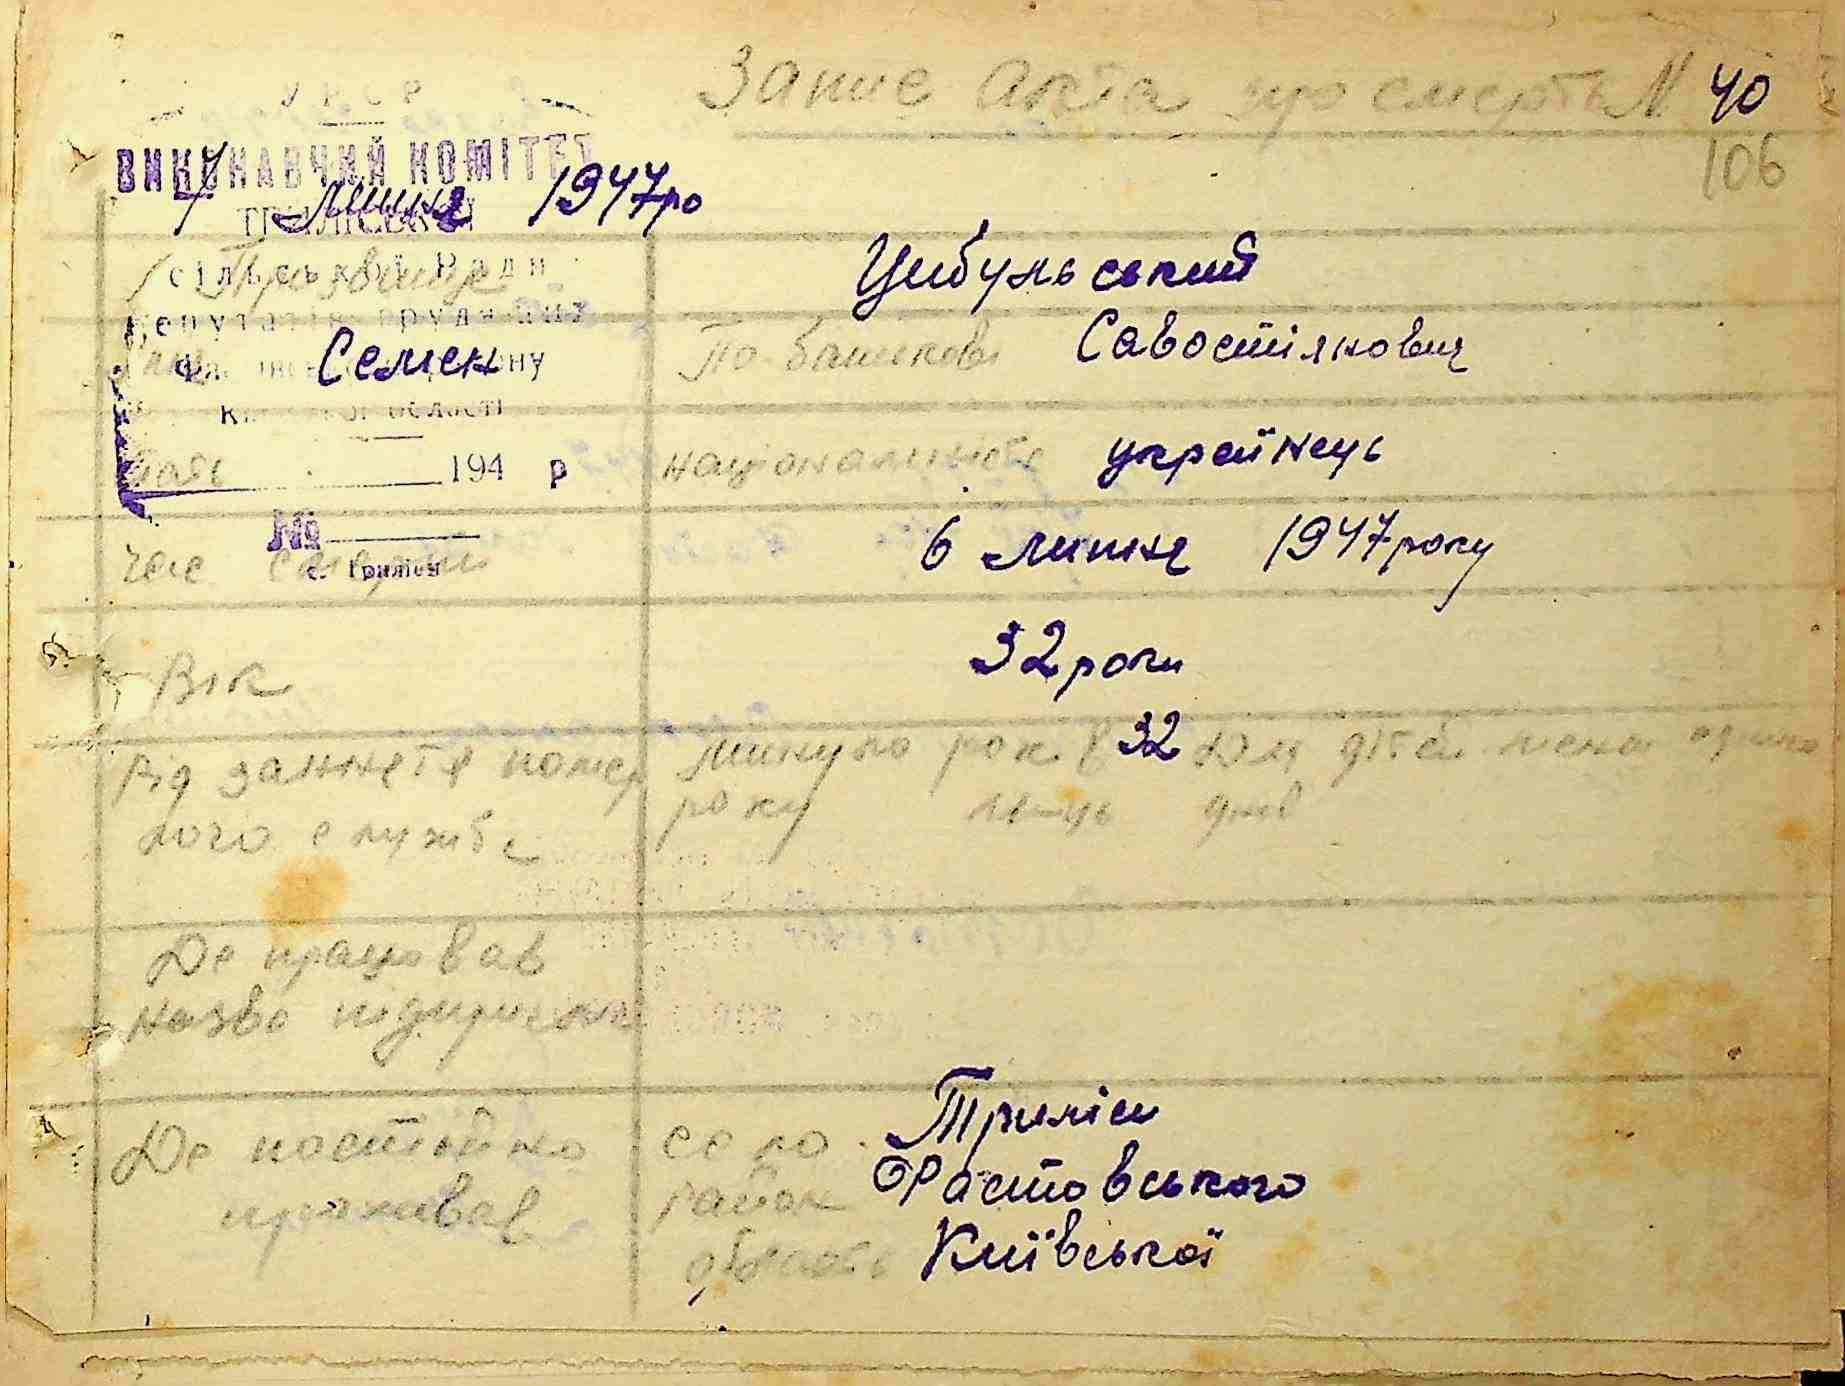 Запис акта про смерть N 40
106
УРСР
ВИКОНАВЧИЙ КОМІТЕТ
7 Липня 1947 ро
ТРИЛІСЬКОЇ
сільської Ради
Прозвище Цибульський
депутатів трудящих
Семен По батькові Савостіянович
Київської області
194 р національність украйінець
№
с. Триліси
час смерти 6 липня 1947 року
Вік 32 роки
Від заняття помер минуло рок 32 для дітей
лого служби року днів
Де працював
назва підприємства
Де постійно село Триліси
проживав район Фастовського
область Київської